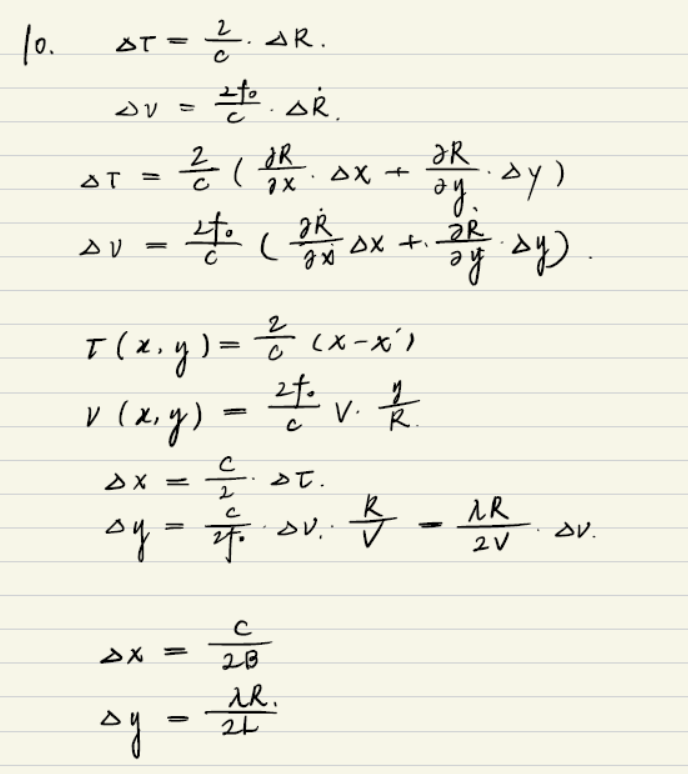 10. ΔT = 2/c · ΔR.
Δν = 2f₀/c · ΔṘ.
ΔT = 2/c ( ∂R/∂x · Δx + ∂R/∂y · Δy )
Δν = 2f₀/c ( ∂Ṙ/∂x Δx + ∂Ṙ/∂y · Δy ) .
τ(x, y) = 2/c (x - x')
ν (x, y) = 2f₀/c V · y/R.
Δx = c/2 · Δτ.
Δy = c/2f₀ · Δν. · R/V = λR/2V · Δν.
Δx = c/2B
Δy = λR./2L